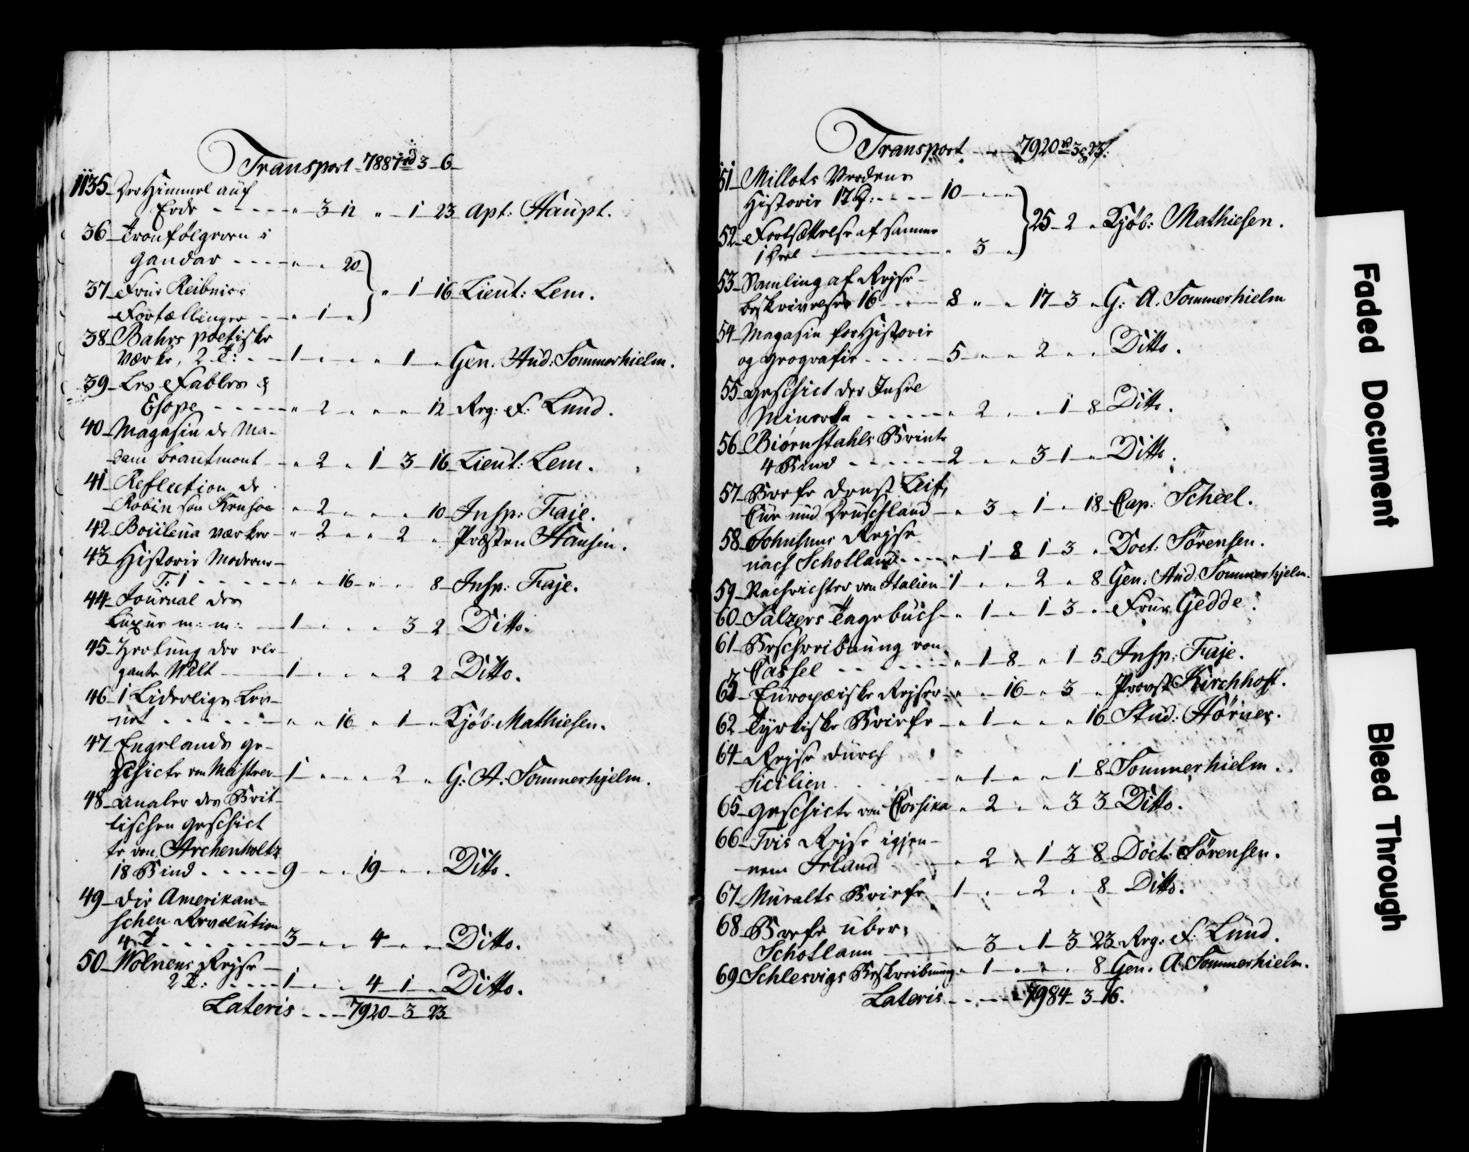 Transport - 7887 rd 3 - 6
1135 - Der Himmel auf
Erde - - - - - „ 3 - 12 „ 1 - 23 Apt: Haupt.
36 - Tronfølgeren i
Gandar - - - - „ 20
„ 1 - 16 Lieut: Lem.
37 - Frue Reibnics
Fortællinger - - „ 1 - „
38 - Bahrs poetiske
Værker, 2 T: - - 1 - „ - „ 1 - „ Gen. Aud. Sommerhielm.
39 - Les Fables d
Esope - - - - - „ 2 - „ - „ 12 Reg: F: Lund.
40 - Magasin de Ma-
dam brantmont - - „ 2 „ 1 - 3 - 16 Lieut: Lem.
41 - Reflection de
Robinson Krusoe „ 2 - „ - „ 10 Insp: Faje.
42 - værker „ 2 - „ 2 - „ Præsten Hansen.
43 - Historie Moderne -
T: 1 - - - - - „ „ 16 „ „ 8 Insp: Faje.
44 - Journal des
Luxus m: m: - 1 - „ „ 3 2 Ditto.
45 - Zeitung der ele-
gante Welt - - 1 - „ „ 2 2 Ditto.
46 - 1 Liderlige Lev-
net - - - - - „ „ 16 „ 1 „ Kjøb: Mathiesen.
47 - Engelands ge-
schicte von - 1 - „ „ 2 - „ G: A: Sommerhjelm.
48 - Analer des Brit-
tischen geschict
te von Archenholtz
18 Bind - - - - 9 - „ „ 19 - „ „ Ditto.
49 - Die Amerikan-
schen Revolution
4 T - - - - - 3 - „ „ 4 - „ „ Ditto.
50 - Wolnens Rejse -
2 T: - - - - 1 - „ „ 4 - 1 - „ Ditto.
Lateris - - - 7920 - 3 - 23
Transport - - 7920 rd 3 - 23
51 - Millots Verdens
Historie 17 B: - - 10 - „ „
25 - 2 „ Kjøb: Mathiesen.
52 - Fortsættelse af samme
1 Deel - „ 3 - „
53 - Samling af Rejse-
beskrivelser 16 - - 8 „ „ 17 - 3 „ G: A. Sommerhielm
54 - Magasin for Historie
og geografie - - - 5 „ „ 2 „ „ Ditto.
55 - geschict der Insel
Minorka - - - - „ 2 „ „ 1 8 Ditto.
56 - Biørnstahls Briefe
4 Bind - - - - 2 - „ „ 3 - 1 „ Ditto.
57 - Briefe
und Deuschland - „ 3 „ 1 „ 18 Cap: Scheel.
58 - Johnsons Rejse
nach Schotland - - „ 1 8 1 3 „ Doct: Sørensen.
59 - Nachrichter von Italien 1 „ „ 2 „ 8 Gen: Aud. Sommerhjelm.
60 - Salzers Tagebuch - „ 1 „ 1 3 „ Frue Gedde.
61 - Beschreibung von
Cassel - - - - „ 1 - 8 „ 1 5 Insp: Faje.
62 - Europæiske Rejser - „ „ 16 „ 3 „ Provst Kirchhoff.
62 - Tyrkiske Briefe - „ 1 „ „ 16 Stud: Hørner.
64 - Rejse durch
Sicilien - „ 1 „ „ 1 8 Sommerhielm.
65 - geschicte von Corsika „ 2 „ „ 3 3 Ditto.
66 - Tvis Rejse igjen-
nem Irland „ 2 „ 1 3 8 Doct: Sørensen.
67 - Muralts Briefe 1 „ „ 2 „ 8 Ditto.
68 - Briefe über
Schotlann - „ 3 „ 1 3 23 Reg: F: Lund.
69 - Schlesvigs Beskreibning „ 1 „ „ 8 Gen. A. Sommerhielm.
Lateris - - - 7984 - 3 - 16.
Faded Document
Bleed Through